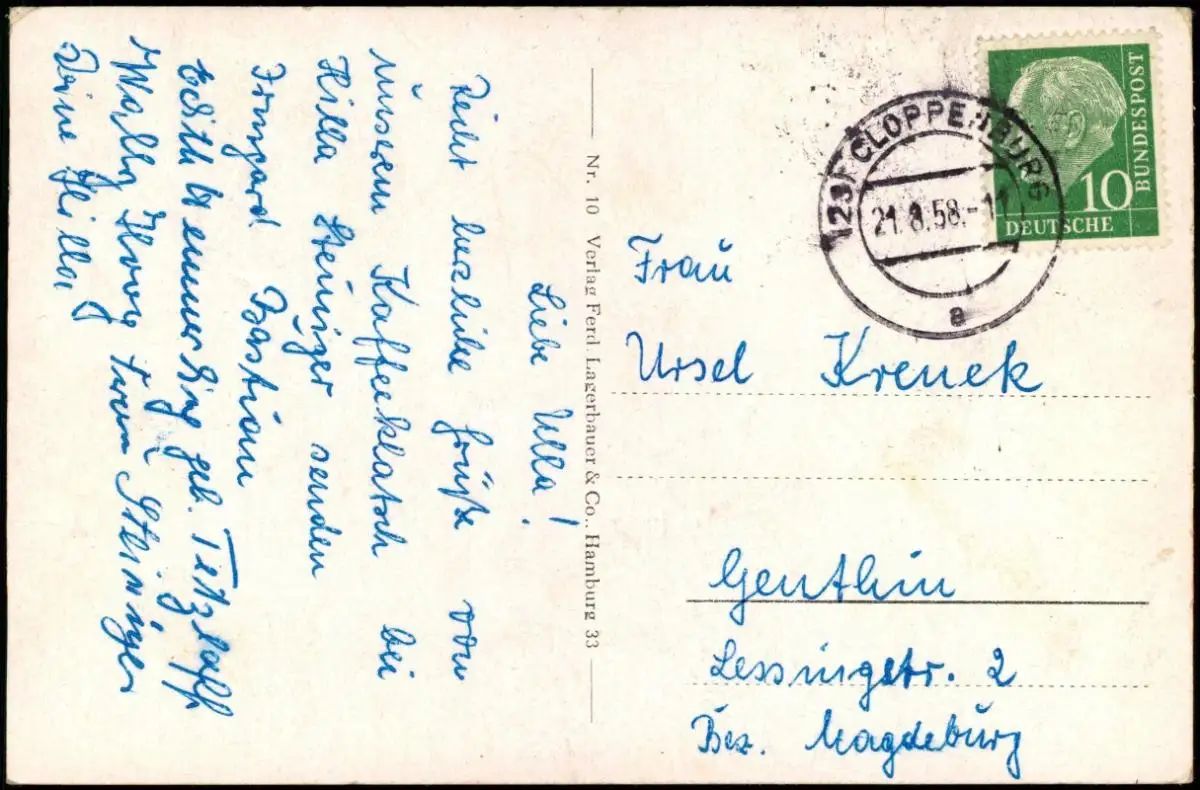 Liebe Ulla!
Recht herzliche Grüße von
unserem Kaffeeklatsch bei
Hilla Steiniger senden
Irmgard Bastian
Edith geb. Tetzlaff
Wally Frau Steiniger
Deine Hilla
Nr. 10 Verlag Ferd. Lagerbauer & Co., Hamburg 33
(23) CLOPPENBURG
21.8.58.-11
a
10
DEUTSCHE
BUNDESPOST
Frau
Ursel Krenek
Genthin
Lessingstr. 2
Bez. Magdeburg